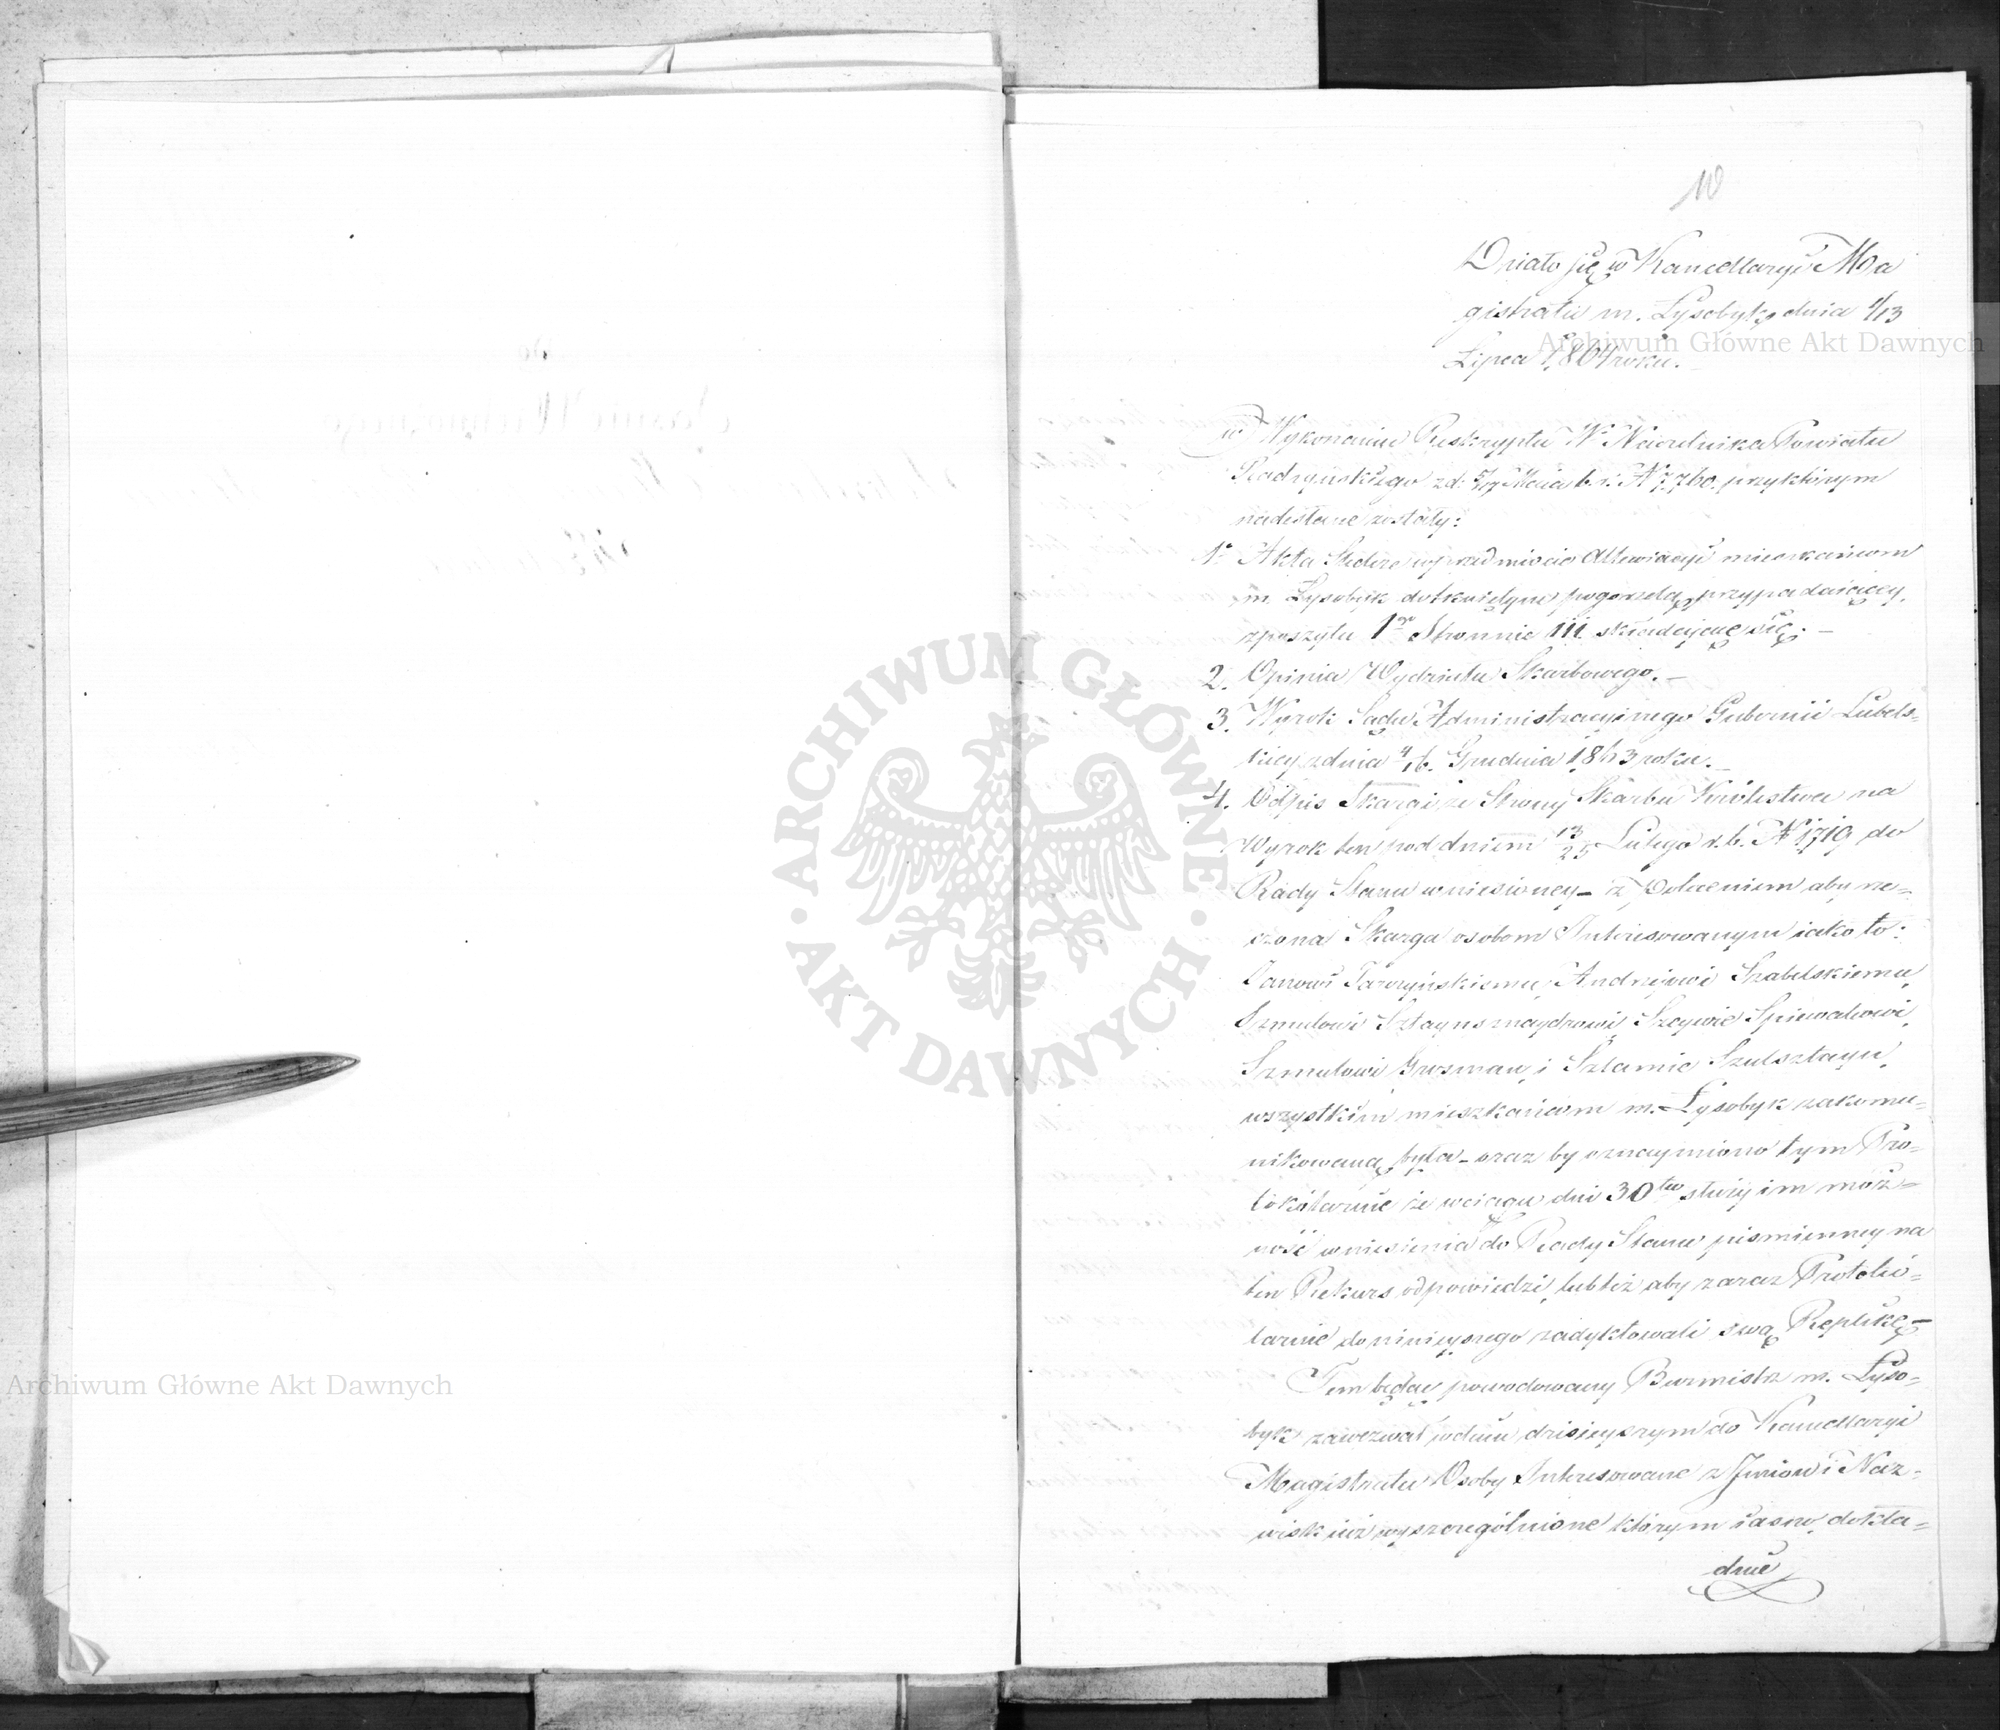 10
Działo się w Kancellaryi Ma
gistratu m. Łysobyk dnia 1/13
Lipca 1864 roku.
w Wykonaniu Reskryptu W. Naczelnika Powiatu
Radzyńskiego z d: 5/17 Maia b. r. N 7,760. przy którym
nadesłane zostały:
1° Akta Śledcze w przedmiocie Allewiacyi mieszkańcom
m. Łysobyk dotkniętym pogorzelą przypadaiącey,
z poszytu 1go Stronnic 111 składaiące się. —
2. Opinia Wydziału Skarbowego. —
3. Wyrok Sądu Administracyinego Gubernii Lubels-
kiey z dnia 4/16. Grudnia 1863 roku. —
4. Odpis Skargi ze Strony Skarbu Królestwa na
Wyrok ten pod dniem 13/25 Lutego r. b. N 1719 do
Rady Stanu wniesioney – z Poleceniem aby rze-
czona Skarga osobom Interesowanym iako to:
Janowi Tarczyńskiemu, Andrzejowi Szabelskiemu,
Szmulowi Sztaynsznaydrowi, Szeywie Spiewakowi,
Szmulowi Grosman, i Szlamie Szulsztayn,
wszystkim mieszkańcom m. Łysobyk zakomu-
nikowaną była – oraz by oznaymiono tym Pro-
tokólarnie że w ciągu dni 30tu służy im moż-
ność wniesienia do Rady Stanu pismienney na
ten Rekurs odpowiedzi, lub też aby zaraz Protokó-
larnie do ninieyszego zadyktowali swą Replikę –
Tem będąc powodowany Burmistrz m. Łyso-
byk zawezwał w dniu dzisieyszym do Kancellaryi
Magistratu Osoby Interesowane z Imion i Naz-
wisk iuż wyszczególnione którym iasno, dokła-
dnie
Archiwum Główne Akt Dawnych
ARCHIWUM GŁÓWNE AKT DAWNYCH
Archiwum Główne Akt Dawnych